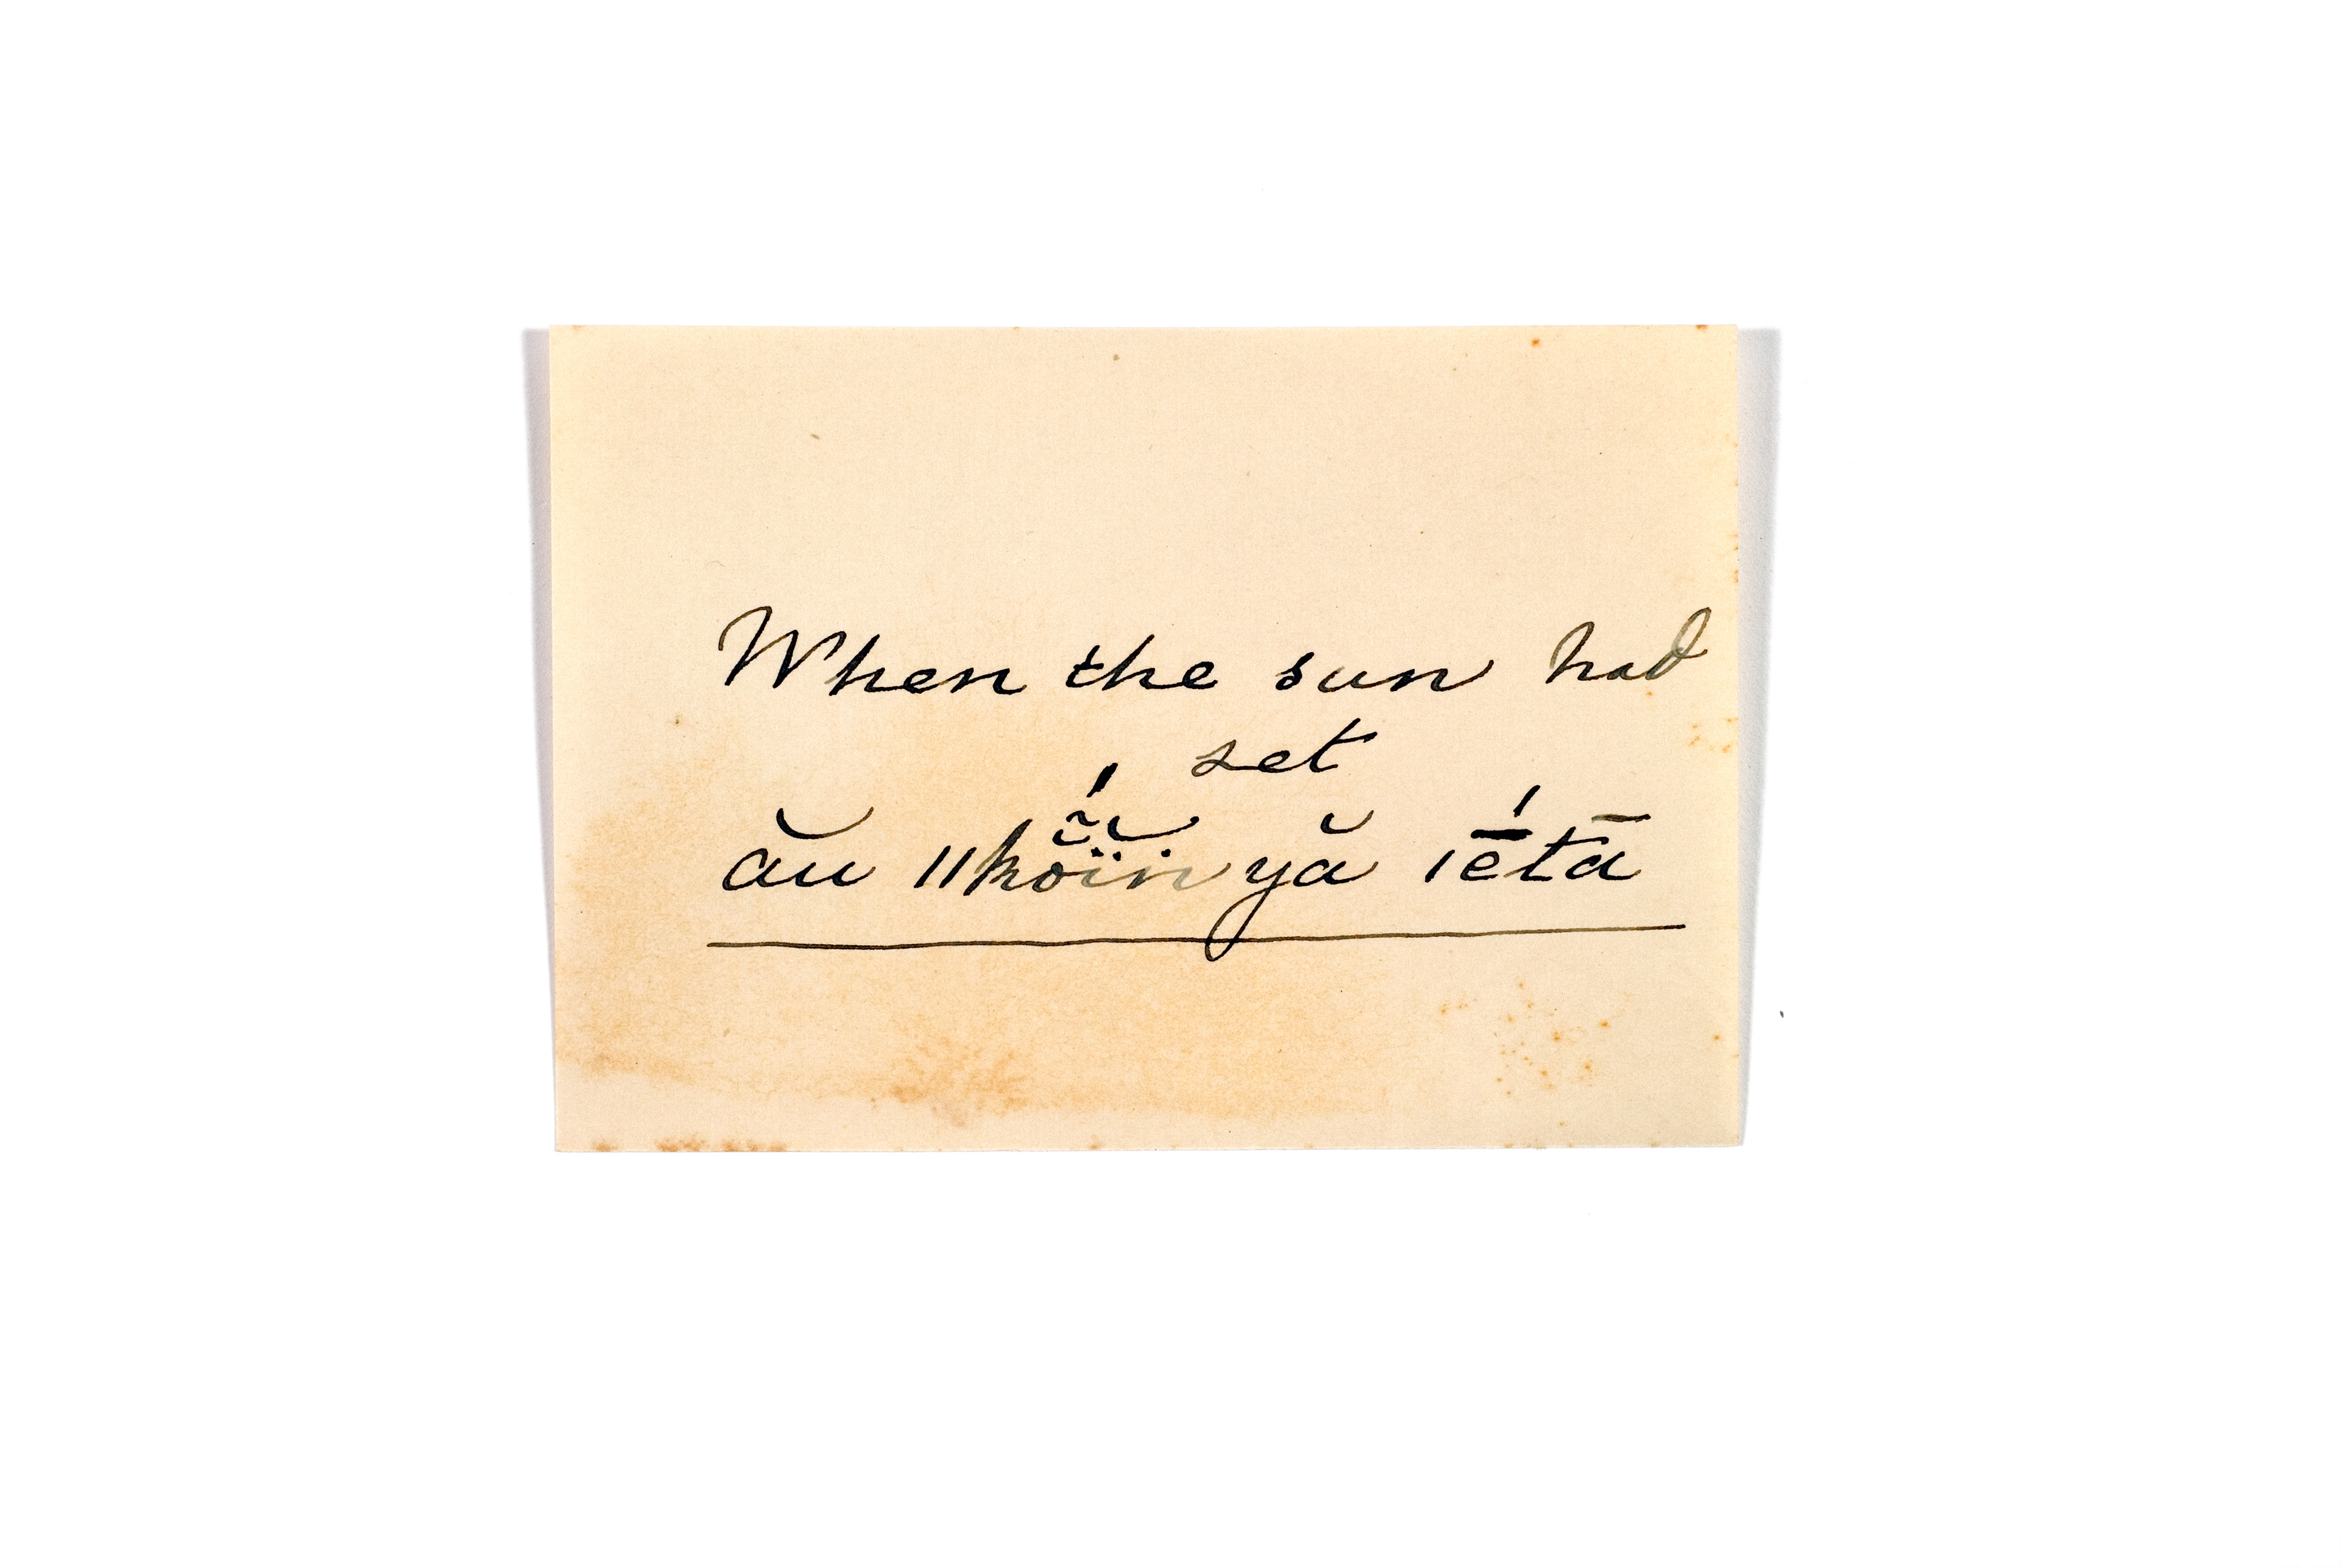 When the sun had
set
ău ǁkȭ̆ĭ́n yă ǀḗtā